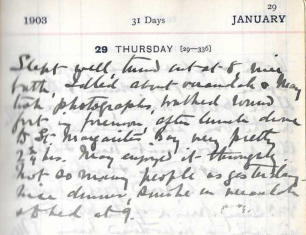 29
1903 31 Days JANUARY
29 THURSDAY [29—336]
Slept well, turned out at 8, nice
bath, Idled about verandah & May
took photographs, walked round
fort in forenoon after lunch drive
to St. Margarits Bay very pretty
2 3/4 hrs. May enjoyed it thoroughly
not so many people as yesterday
nice dinner, smoke in verandah
& bed at 9.